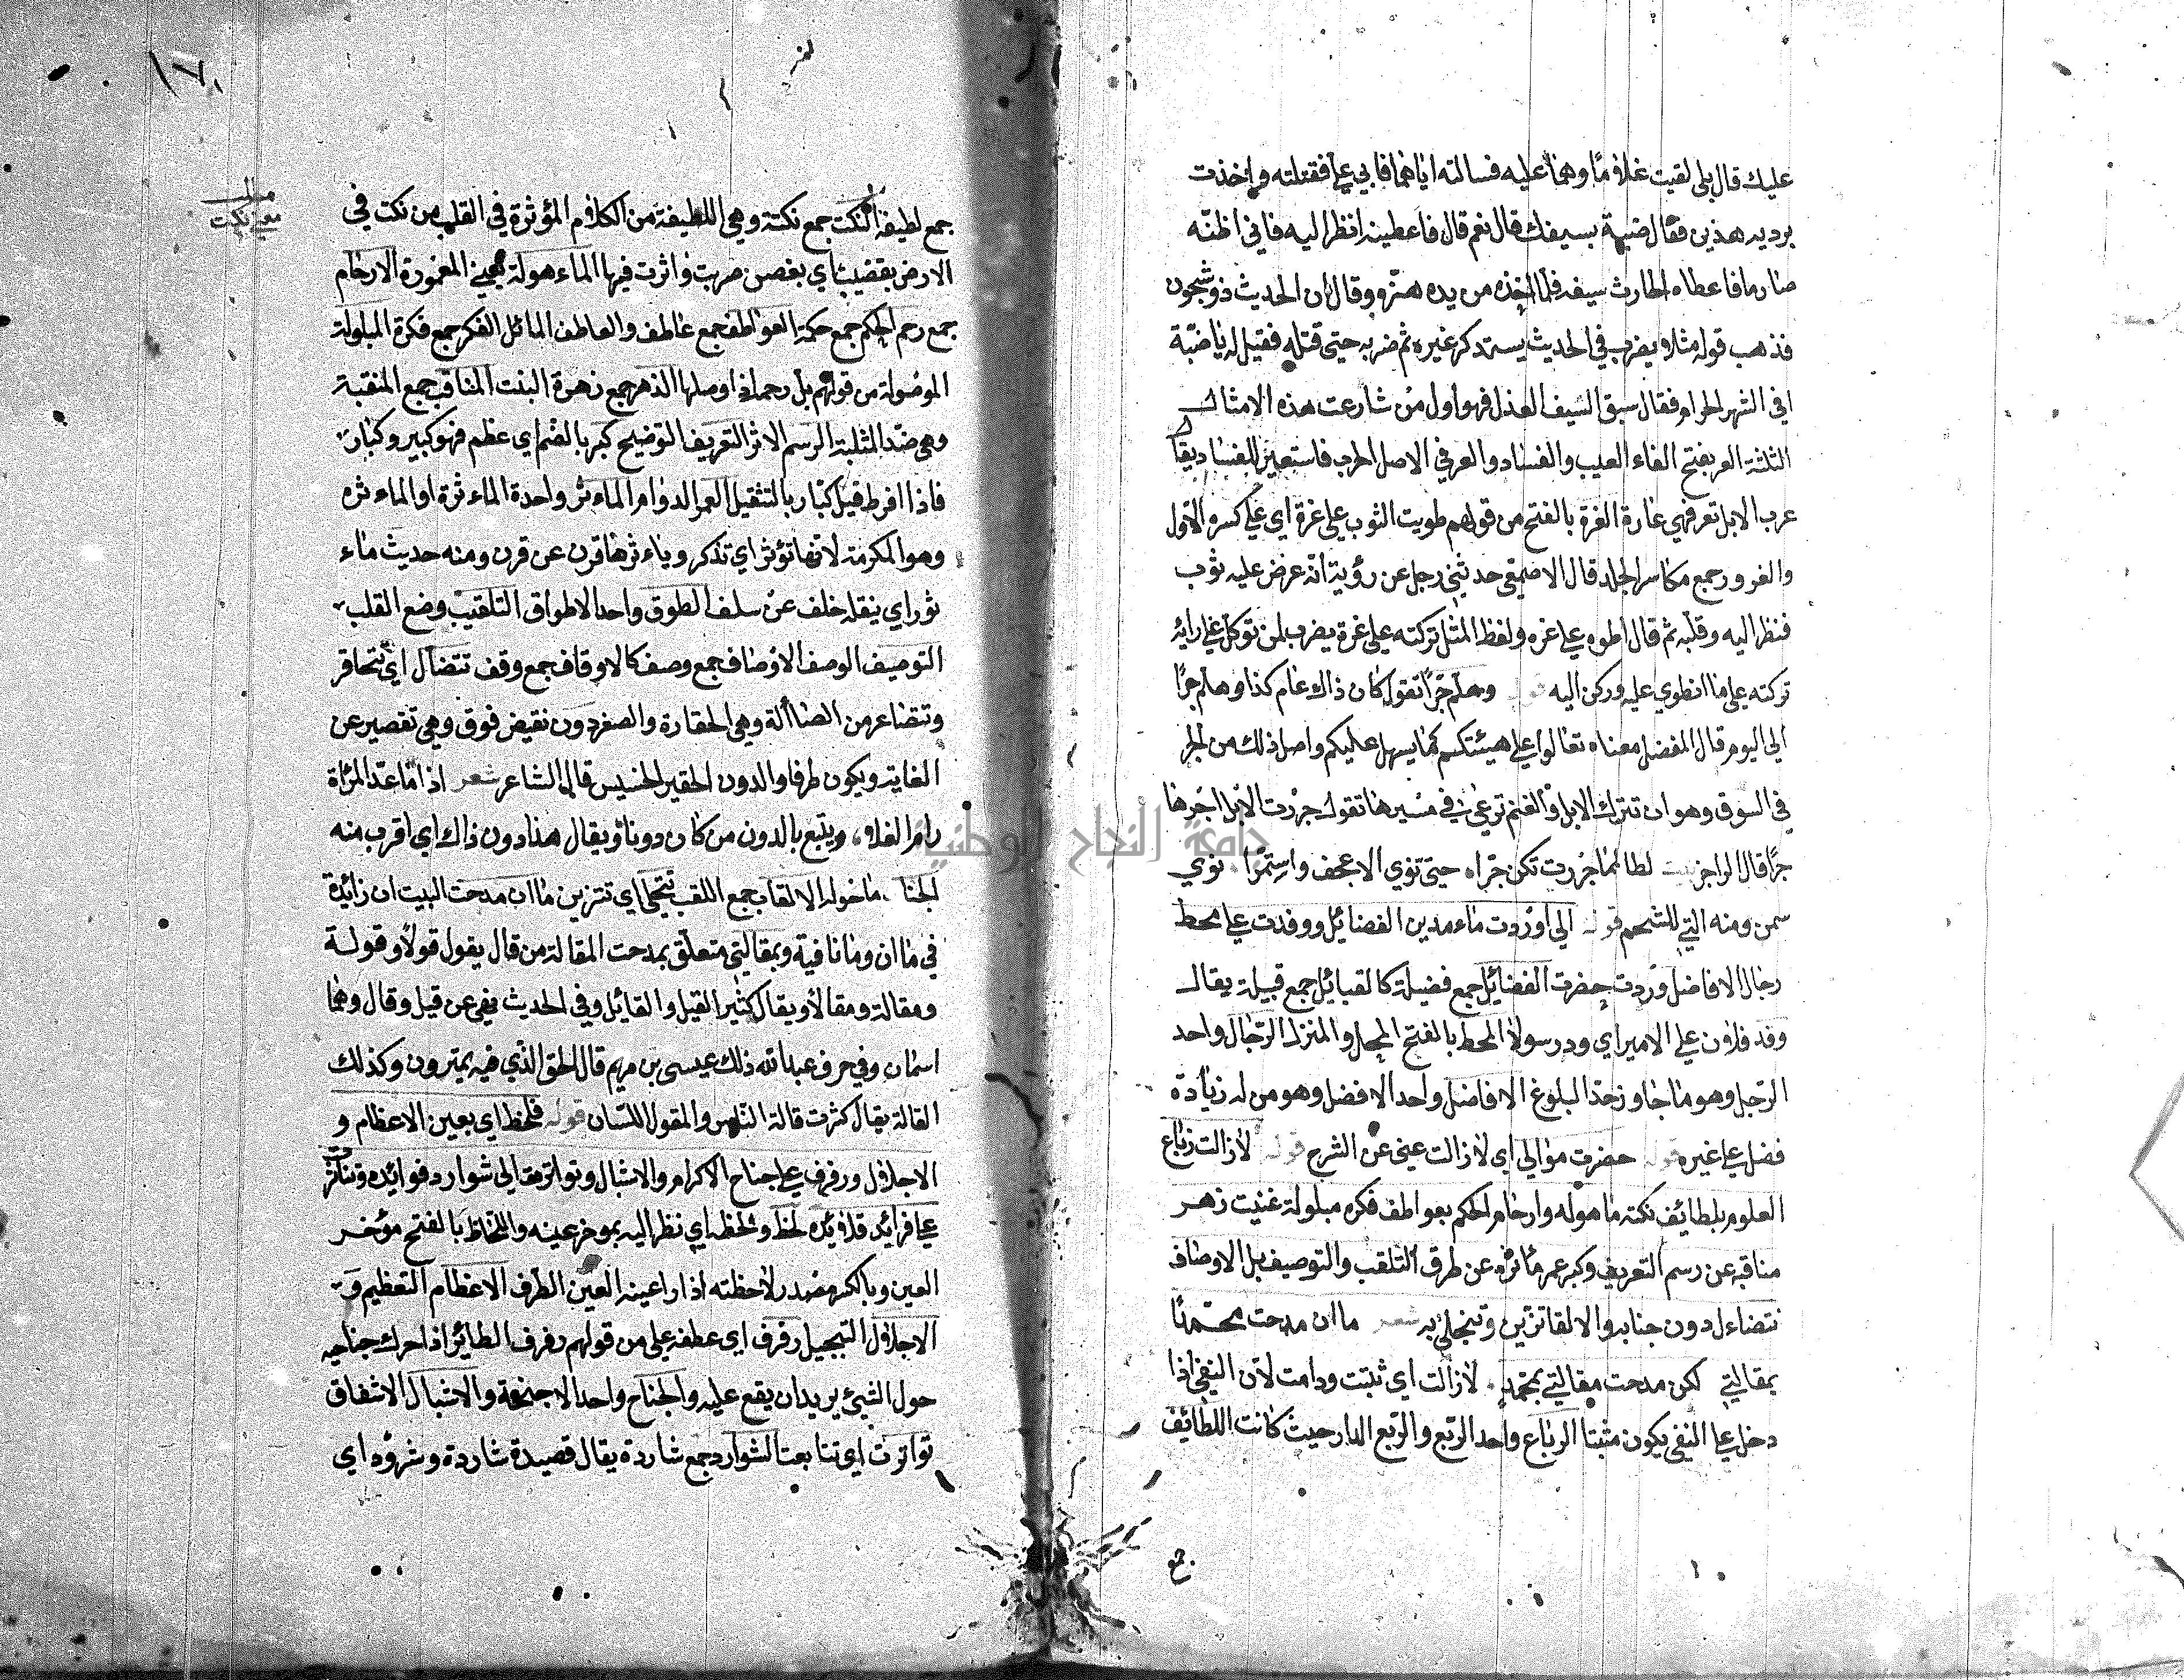 عليك قال بلى لقيت غلامًا وهما عليه فسالته اياهما فابي علي فقتلته واخذت
برديه هذين فقال ضبة بسيفك قال نعم قال فاعطينه انظر اليه فاني اظنّه
صارما فاعطاه الحارث سيفه فلما اخذه من يده هزّه وقال ان الحديث ذو شجون
فذهب قوله مثلا يضرب في الحديث يستذكر غيره ثم ضربه حتى قتله فقيل له يا ضبّة
افي الشهر الحرام فقال سبق السيف العذل فهو اول من شارعت هذه الامثال
الثلثة العر بفتح الفاء العيب والفساد والعر في الاصل الجرب فاستعير للفساد يقال
عرب الابل تعر فهي عارة الغرة بالفتح من قولهم طويت الثوب على غرة اي على كسره الاول
والغرور جمع مكاسر الجلد قال الاصمعي حدثني رجل عن رؤبة انّه عرض عليه ثوب
فنظر اليه وقلّبه ثم قال اطوه على غره ولفظ المثل تركته على غرة يضرب لمن توكل على رايه
تركته على ما انطوي عليه وركن اليه قوله وهلم جرّا تقول كان ذاك عام كذا وهلم جرّا
الى اليوم قال المفضل معناه تعالوا على هيئتكم كما يسهل عليكم واصل ذلك من الجر
في السوق وهو ان تترك الابل والغنم ترعى في مسيرها تقول جررت الابل اجرها
جرًّا قال الراجز بيت لطالما جررتكن جرّا حتى نوي الاعجف واستمرّا نوي
سمن ومنه الني للشحم قوله الى اوردت ماء مدين الفضايل ووفدت على محط
رجال الافاضل وردت حضرت الفضائل جمع فضيلة كالقبائل جمع قبيلة يقال
وفد فلان على الامير اي ورد رسولا المحط بالفتح المحل والمنزل الرّجال واحد
الرّجل وهو ما جاوز حدّ البلوغ الافاضل واحد الافضل وهو من له زيادة
فضل على غيره قوله حضرت موالي اي لازالت عيني عن الشرح قوله لازالت رباع
العلوم بلطائف نكته ماهوله وارحام الحكم بعواطف فكره مبلولة غنيت زهر
مناقبه عن رسم التعريف وكبر عمر مآثره عن طرق التلقب والتوصيف بل الاوصاف
تتضاءل دون جنابه والالقاب تزين وتنجلي به شعر ما ان مدحت محمّدًا
بمقالتي لكن مدحت مقالتي بمحمد لازالت اي ثبتت ودامت لانّ النفي اذا
دخل على النفي يكون مثبتا الرباع واحد الرّبع والرّبع الدار حيث كانت اللطائف
جمع
جمع لطيفة النكت جمع نكتة وهي اللطيفة من الكلام المؤثرة في القلب من نكت في
الارض بقضيب اي بغصن ضربت واثرت فيها الماء هولة بمعنى المغمورة الارحام
جمع رحم الحكم جمع حكمة العواطف جمع عاطف والعاطف المائل الفكر جمع فكرة المبلولة
الموصولة من قولهم بل رحمه اذا وصلها الزهر جمع زهرة البنت المناقب جمع المنقبة
وهي ضدّ المثلبة الرسم الاثر التعريف التوضيح كبر بالضم اي عظم فهو كبير وكبار
فاذا افرط قيل كبّار بالتثقيل العمر الدوام الماءثر واحدة الماءثرة او الماءثره
وهو المكرمة لانها تؤثر اي تذكر وياءثرها قرن عن قرن ومنه حديث ماء
ثور اي ينقله خلف عن سلف الطوق واحد الاطواق التلقيب وضع القلب
التوصيف الوصف الاوصاف جمع وصف كالاوقاف جمع وقف تتضآل اي تتحاقر
وتتصاغر من الضاألة وهي الحقارة والصغر دون نقيض فوق وهي تقصير عن
الغاية ويكون ظرفا والدون الحقير الخسيس قال الشاعر شعر اذا ما عدّ المرأة
رام العلاء ويتبع بالدون من كان دونا ويقال هذا دون ذاك اي اقرب منه
الجنا ما حوله الالقاب جمع اللقب تتحلى اي تتزين ما ان مدحت البيت ان زائدة
في ما ان وما نافية وبمقالتي متعلق بمدحت المقالة من قال يقول قولا وقولة
ومقالة ومقالا ويقال كثير القيل والقائل وفي الحديث نهي عن قيل وقال وهما
اسمان وفي حرف عبدالله ذلك عيسى بن مريم قال الحق الذي فيه يمترون وكذلك
القالة يقال كثرت قالة الناس والمقول اللسان قوله فلحظ اي بعين الاعظام و
الاجلال ورفرف على جناح الاكرام والاشبال وتواترت الى شوارد فوائده وتناثر
على فرائد قلائده لحظ ولحظه اي نظر اليه بموخر عينه واللحاظ بالفتح مؤخر
العين وبالكسر مصدر لاحظته اذا راعيته العين الطرف الاعظام التعظيم و
الاجلال التبجيل رفرف اي عطف على من قولهم رفرف الطائر اذا حرك جناحيه
حول الشيئ يريد ان يقع عليه والجناح واحد الاجنحة والاشبال الاشفاق
تواترت اي تتابعت الشوارد جمع شاردة يقال قصيدة شاردة وشرود اي
مطلب
معنى نكت
١٧
جامعة النجاح الوطنية